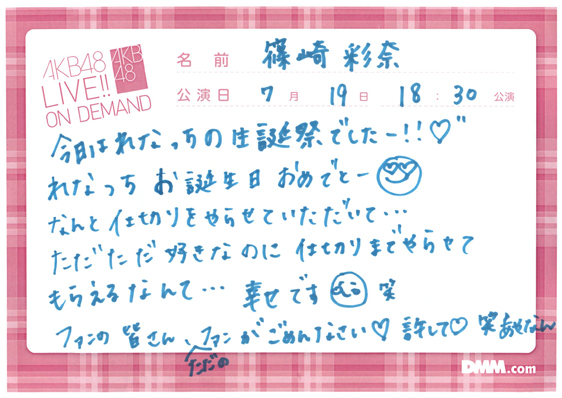 AKB48
LIVE!!
ON DEMAND
AKB
48
名前 篠崎彩奈
公演日 7月 19日 18:30 公演
今日はれなっちの生誕祭でしたー!!♡"
れなっち お誕生日 おめでとー
なんと仕切りをやらせていただいて…
ただただ好きなのに 仕切りまでやらせて
もらえるなんて… 幸せです 笑
ファンの皆さん、ファンがごめんなさい♡ 許して♡ 笑
ただの
DMM.com